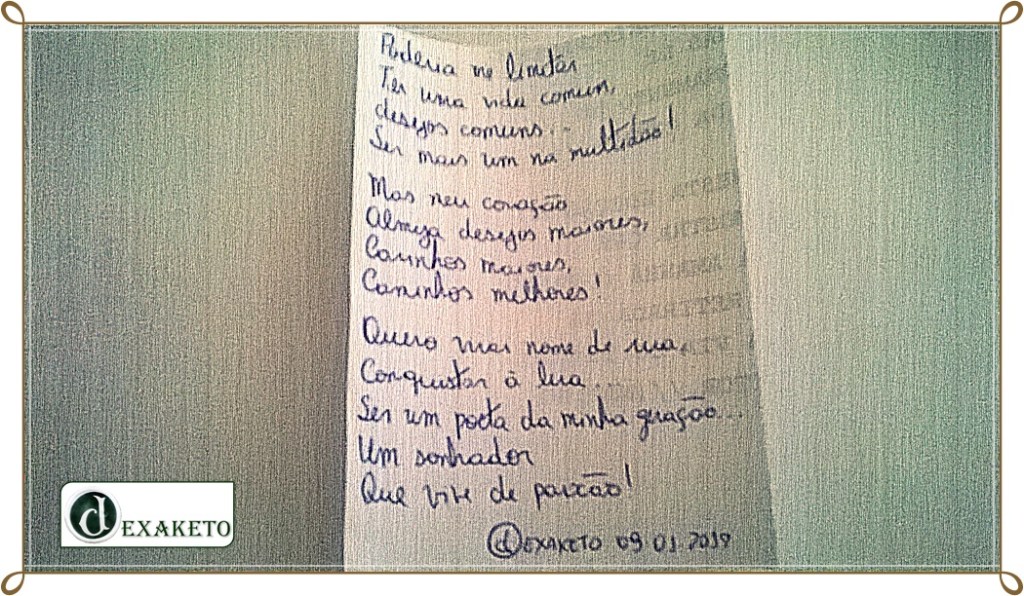 Poderia me limitar
Ter uma vida comum,
desejos comuns...
Ser mais um na multidão!
Mas meu coração
Almeja desejos maiores,
Carinhos maiores,
Caminhos melhores!
Quero virar nome de rua,
Conquistar à lua...
Ser um poeta da minha geração...
Um sonhador
Que vive de paixão!
dEXAKETO 09 01 2019
dEXAKETO